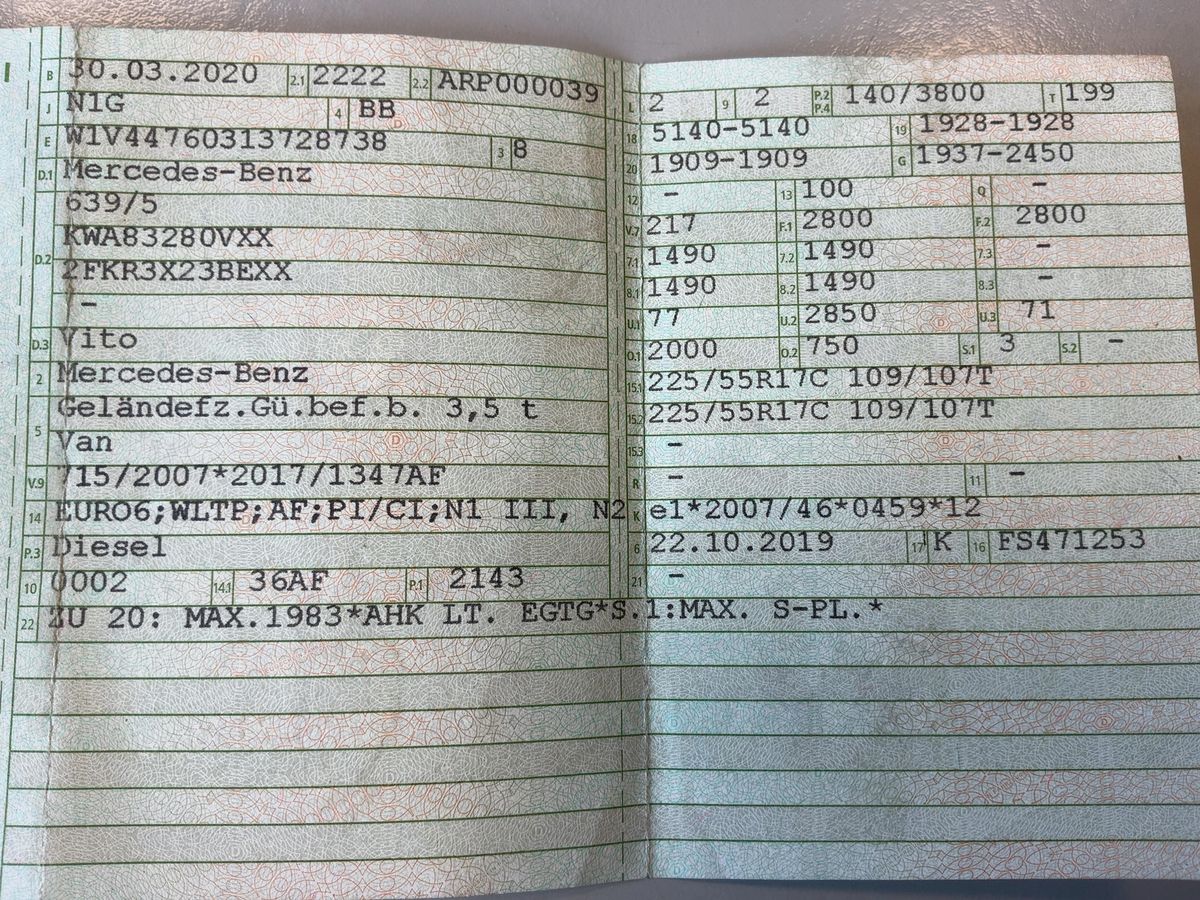 B 30.03.2020 2.1 2222 2.2 ARP000039
J N1G 4 BB
E W1V44760313728738 3 8
D.1 Mercedes-Benz
639/5
D.2 KWA83280VXX
2FKR3X23BEXX
–
D.3 Vito
2 Mercedes-Benz
5 Geländefz.Gü.bef.b. 3,5 t
Van
V.9 715/2007*2017/1347AF
14 EURO6;WLTP;AF;PI/CI;N1 III, N2
P.3 Diesel
10 0002 14.1 36AF P.1 2143
L 2 9 2 P.2 P.4 140/3800 T 199
18 5140-5140 19 1928-1928
20 1909-1909 G 1937-2450
12 – 13 100 Q –
V.7 217 F.1 2800 F.2 2800
7.1 1490 7.2 1490 7.3 –
8.1 1490 8.2 1490 8.3 –
U.1 77 U.2 2850 U.3 71
O.1 2000 O.2 750 S.1 3 S.2 –
15.1 225/55R17C 109/107T
15.2 225/55R17C 109/107T
15.3 –
R – 11 –
K e1*2007/46*0459*12
6 22.10.2019 17 K 16 FS471253
21 –
22 ZU 20: MAX.1983*AHK LT. EGTG*S.1:MAX. S-PL.*